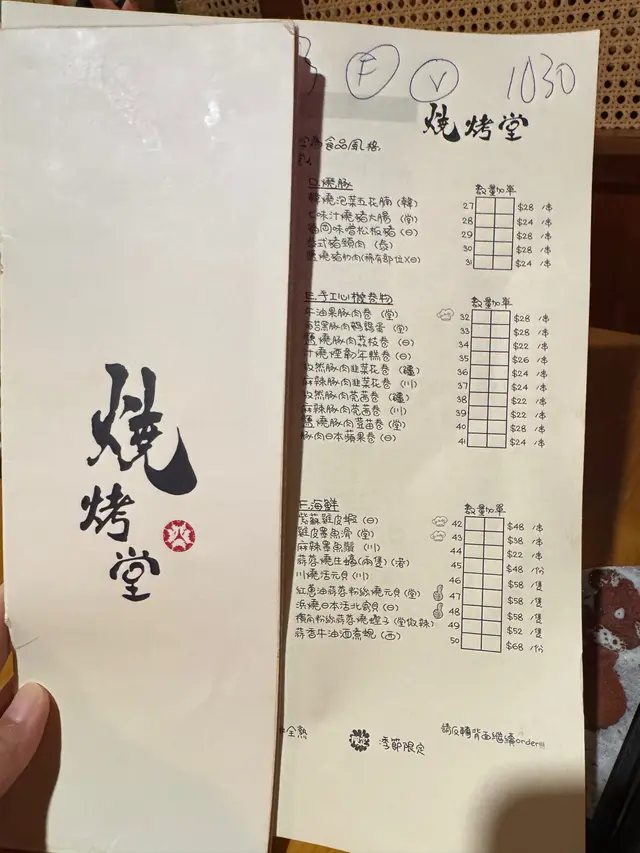 燒
烤
堂
火
F V 1030
燒烤堂
食品風格
D.燒豚 數量加辛
燒泡菜五花腩(韓) 27 $28 /串
七味汁燒豬大腸(堂) 28 $24 /串
味噌松板豬(日) 29 $28 /串
泰式豬頸肉(泰) 30 $28 /串
鹽燒豬肋肉(稀有部位)(日) 31 $24 /串
E.手工心機卷物 數量加辛
牛油果豚肉卷(堂) 32 $28 /串
豚肉鵪鶉蛋(堂) 33 $28 /串
鹽燒豚肉荔枝卷(日) 34 $22 /串
汁燒煙韌年糕卷(日) 35 $26 /串
孜然豚肉韭菜花卷(疆) 36 $24 /串
麻辣豚肉韭菜花卷(川) 37 $24 /串
孜然豚肉芫茜卷(疆) 38 $22 /串
麻辣豚肉芫茜卷(川) 39 $22 /串
鹽燒豚肉荳苗卷(堂) 40 $28 /串
豚肉日本蘋果卷(日) 41 $24 /串
F.海鮮 數量加辛
紫蘇雞皮蝦(日) 42 $48 /串
雞皮墨魚滑(堂) 43 $38 /串
麻辣墨魚鬚(川) 44 $22 /串
蒜蓉燒生蠔(兩隻)(港) 45 $48 /份
川燒活元貝(川) 46 $58 /隻
紅蔥油蒜蓉粉絲燒元貝(堂) 47 $58 /隻
浜燒日本活北寄貝(日) 48 $58 /隻
檳角粉絲蒜蓉燒蟶子(堂做辣) 49 $52 /隻
蒜香牛油酒煮蜆(西) 50 $68 /份
全熟 季節限定 請反轉背面繼續order!!!